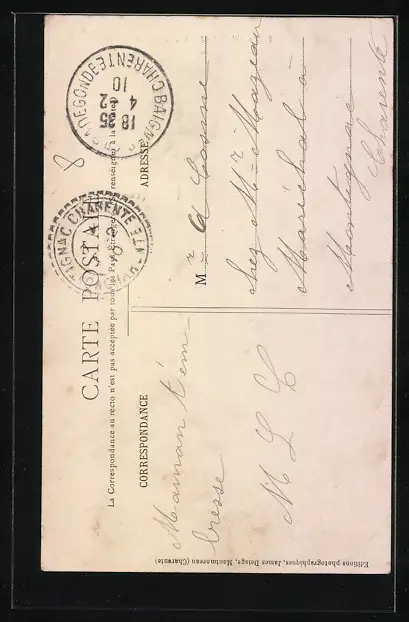 CARTE POSTALE
La Correspondance au recto n'est pas acceptée par tous les Pays Étrangers. renseigner à la
CORRESPONDANCE
Maman t'em-
brasse
M L C
ADRESSE
Mr A
chez Mr Mazeau
Maréchal à
Montignac
Charente
BAIGNES CHARENTE
18 35
4 -2
10
TIGNAC CHARENTE
8
Editions photographiques, James Delage, Montmoreau (Charente)